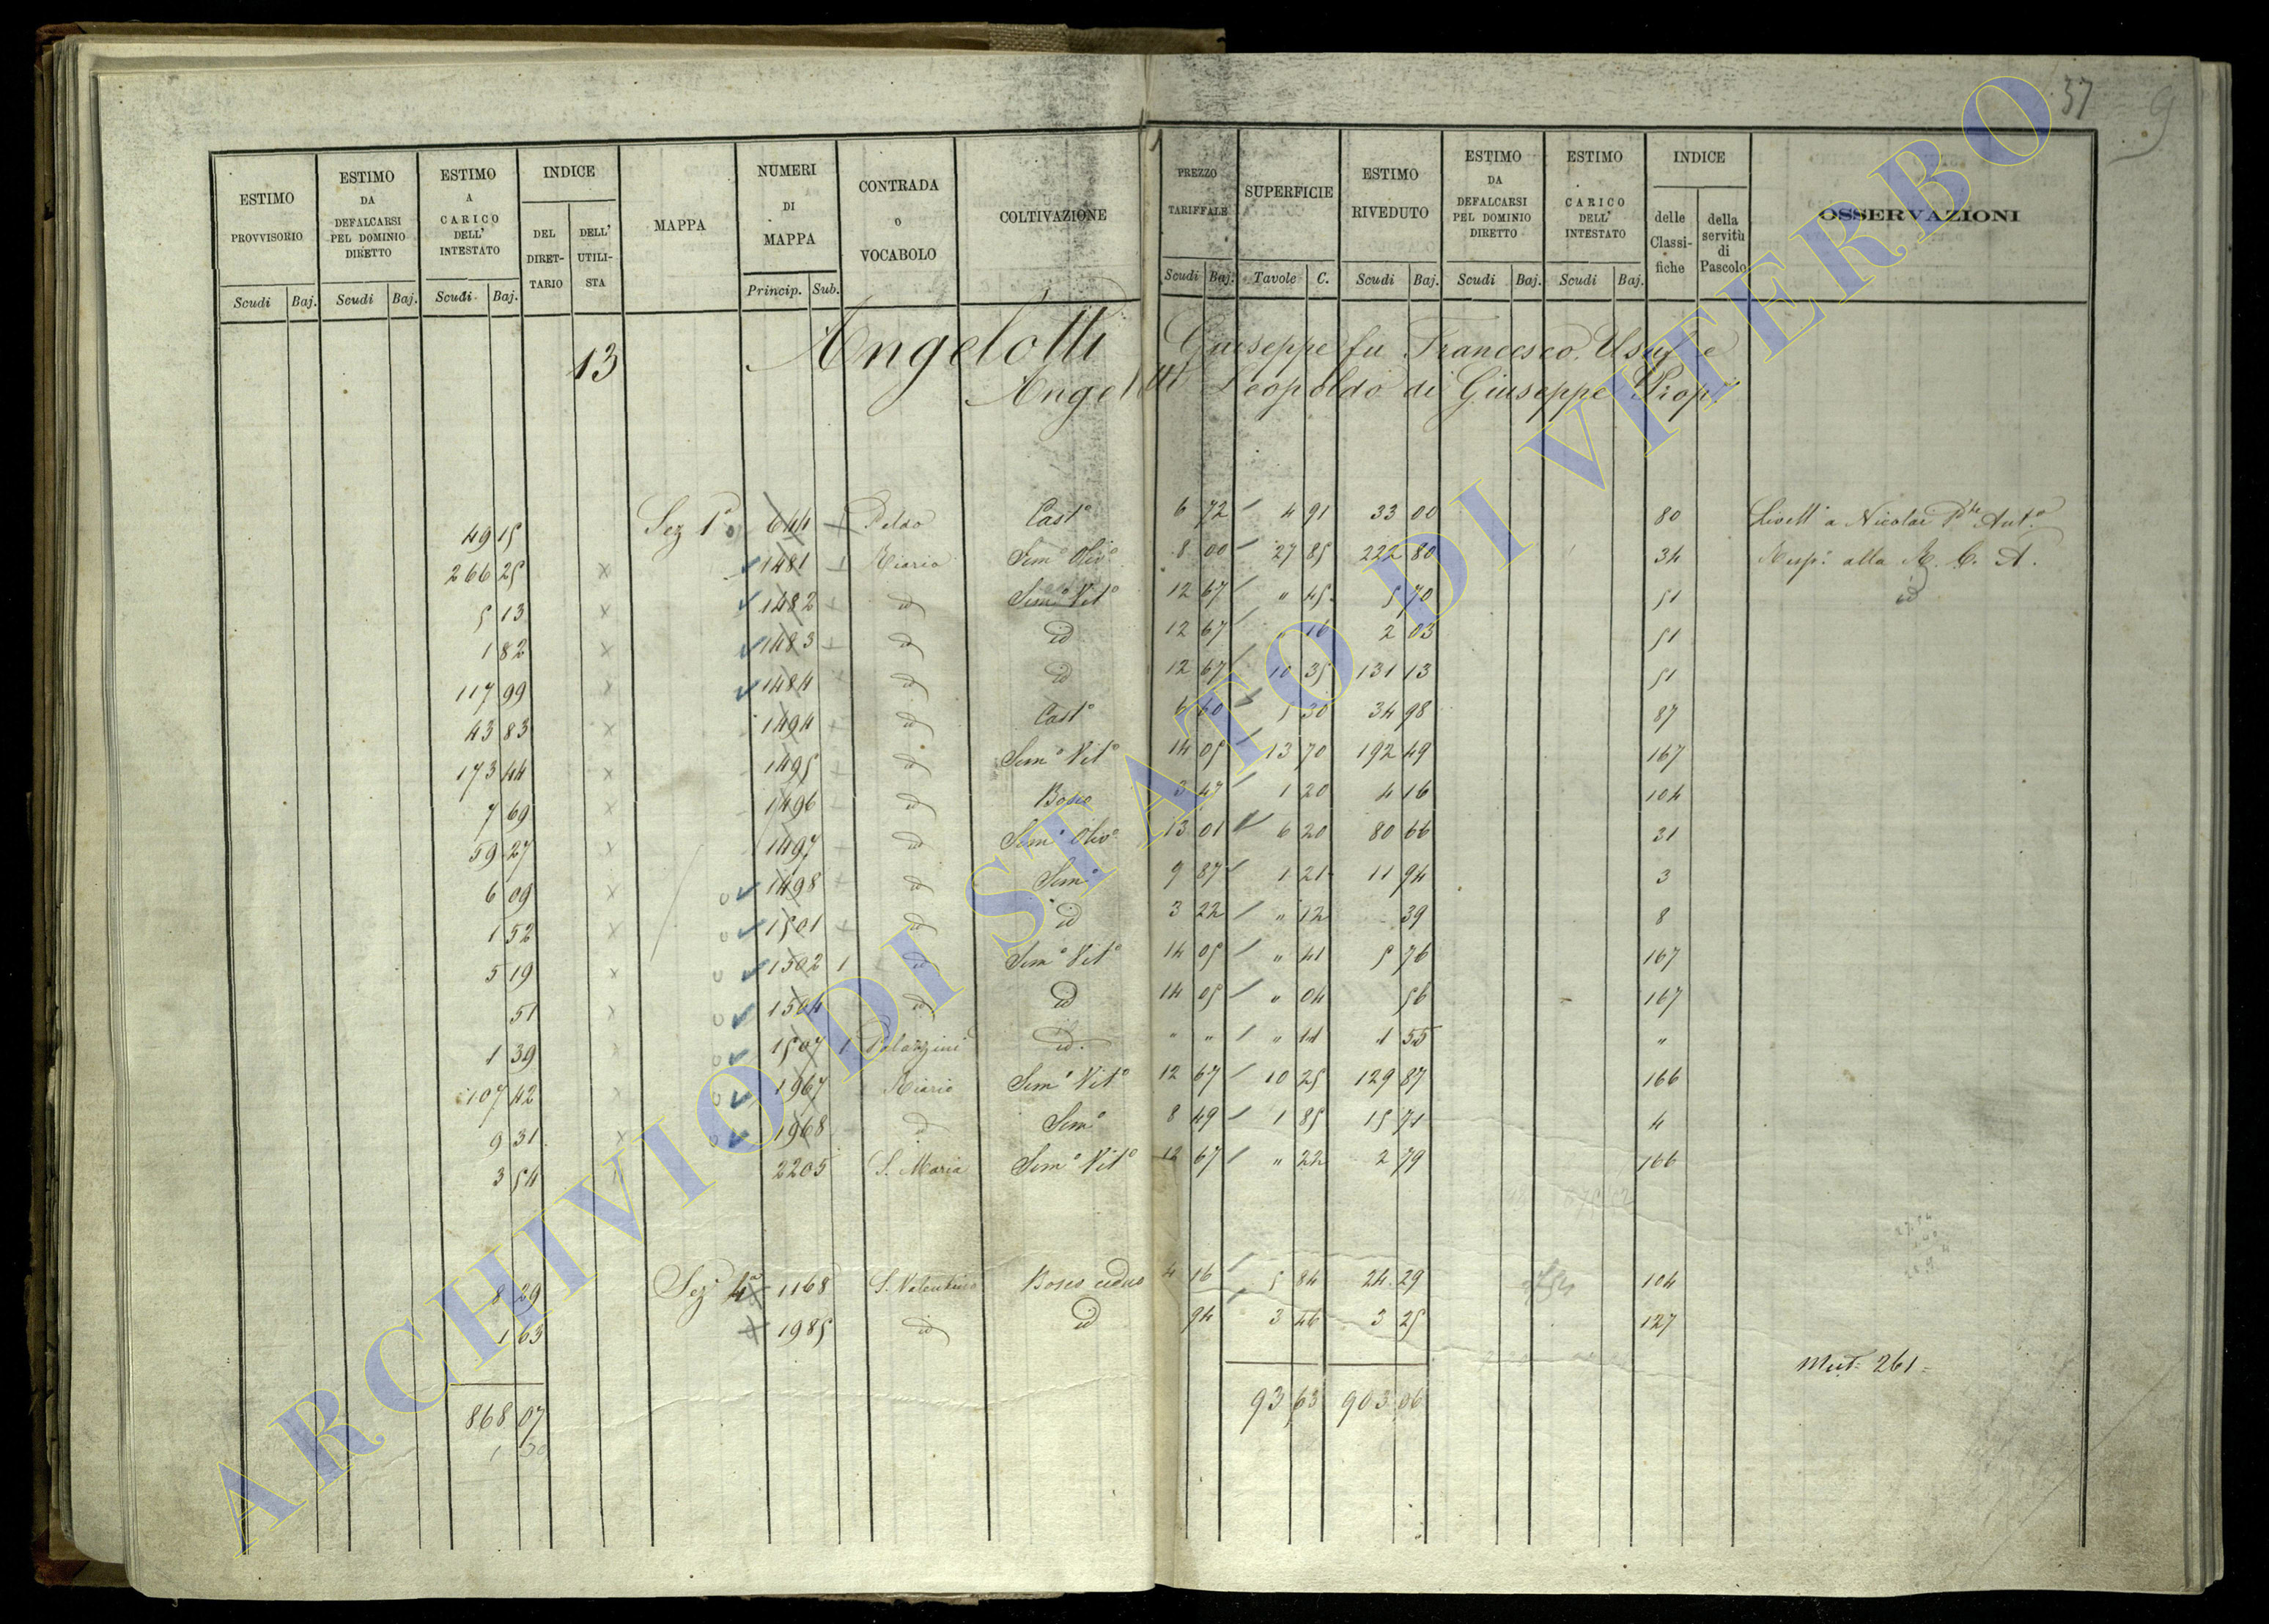 37
9
ESTIMO PROVVISORIO
ESTIMO DA DEFALCARSI PEL DOMINIO DIRETTO
ESTIMO A CARICO DELL' INTESTATO
INDICE
DEL DIRET-TARIO
DELL' UTILI-STA
MAPPA
NUMERI DI MAPPA
CONTRADA O VOCABOLO
COLTIVAZIONE
PREZZO TARIFFALE
SUPERFICIE
ESTIMO RIVEDUTO
ESTIMO DA DEFALCARSI PEL DOMINIO DIRETTO
ESTIMO A CARICO DELL' INTESTATO
INDICE
delle Classi-fiche
della servitù di Pascolo
OSSERVAZIONI
Scudi Baj. Scudi Baj. Scudi Baj. Princip. Sub. Scudi Baj. Tavole C. Scudi Baj. Scudi Baj. Scudi Baj.
13 Angelotti Giuseppe fu Francesco
Angelotti Leopoldo di Giuseppe Prop.
49 15 Sez 1a 644 Peldo Casto 6 72 4 91 33 00 80 Livello a Nicolai Anto
266 25 x 1481 Riario Semo Olivo 8 00 27 85 222 80 34 Risp. alla R. C. A.
5 13 x 1482 id Semo Vito 12 67 " 45 5 70 51 id
1 82 x 1483 id id 12 67 " 16 2 03 51
117 99 x 1484 id id 12 67 10 35 131 13 51
43 83 x 1494 id Casto 6 60 5 30 34 98 87
173 44 x 1495 id Semo Vito 14 05 13 70 192 49 167
7 69 x 1496 id Bosco 3 47 1 20 4 16 104
59 27 x 1497 id Semo Olivo 13 01 6 20 80 66 31
6 09 x 1498 id Semo 9 87 1 21 11 94 3
1 52 x 1501 id id 3 22 " 12 39 8
5 19 x 1502 1 id Semo Vito 14 05 " 41 5 76 167
51 x 1504 id id 14 05 " 04 56 167
1 39 x 1507 1 Palazzini id " " " 11 1 55 "
107 42 x 1967 Riario Semo Vito 12 67 10 25 129 87 166
9 31 x 1968 id Semo 8 49 1 85 15 71 4
3 54 2205 S. Maria Semo Vito 12 67 " 22 2 79 166
8 29 Sez 4a 1168 S. Valentino Bosco ceduo 4 16 5 84 24 29 104
1 63 1985 id id 94 3 46 3 25 127
Mut. 261
868 07 93 63 903 06
1 30
ARCHIVIO DI STATO DI VITERBO